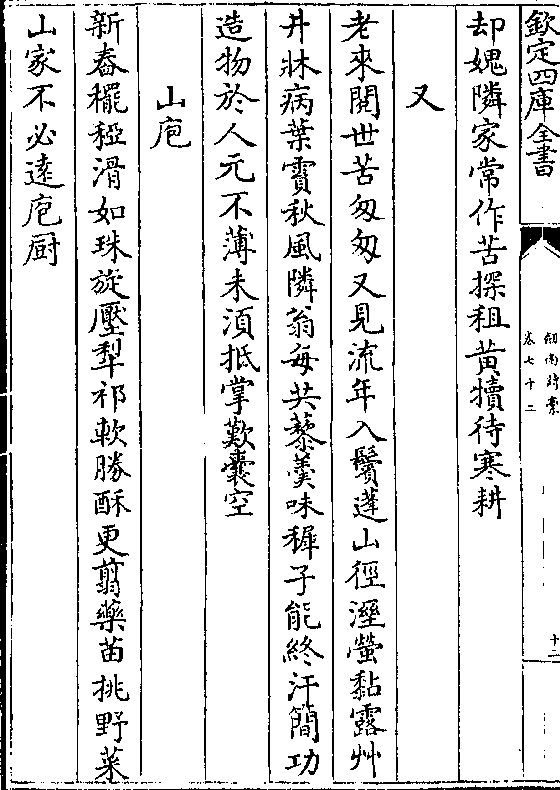 欽定四庫全書
劒南詩藁
卷七十二
十二
却媿隣家常作苦探租黄犢待寒耕
又
老來閱世苦匆匆又見流年入鬢蓬山徑溼螢黏露艸
井牀病葉賈秋風隣翁每共藜羮味稺子能終汗簡功
造物於人元不薄未湏抵掌歎囊空
山庖
新舂䆉稏滑如珠旋壓犁祁軟勝酥更翦藥苗挑野菜
山家不必逺庖厨